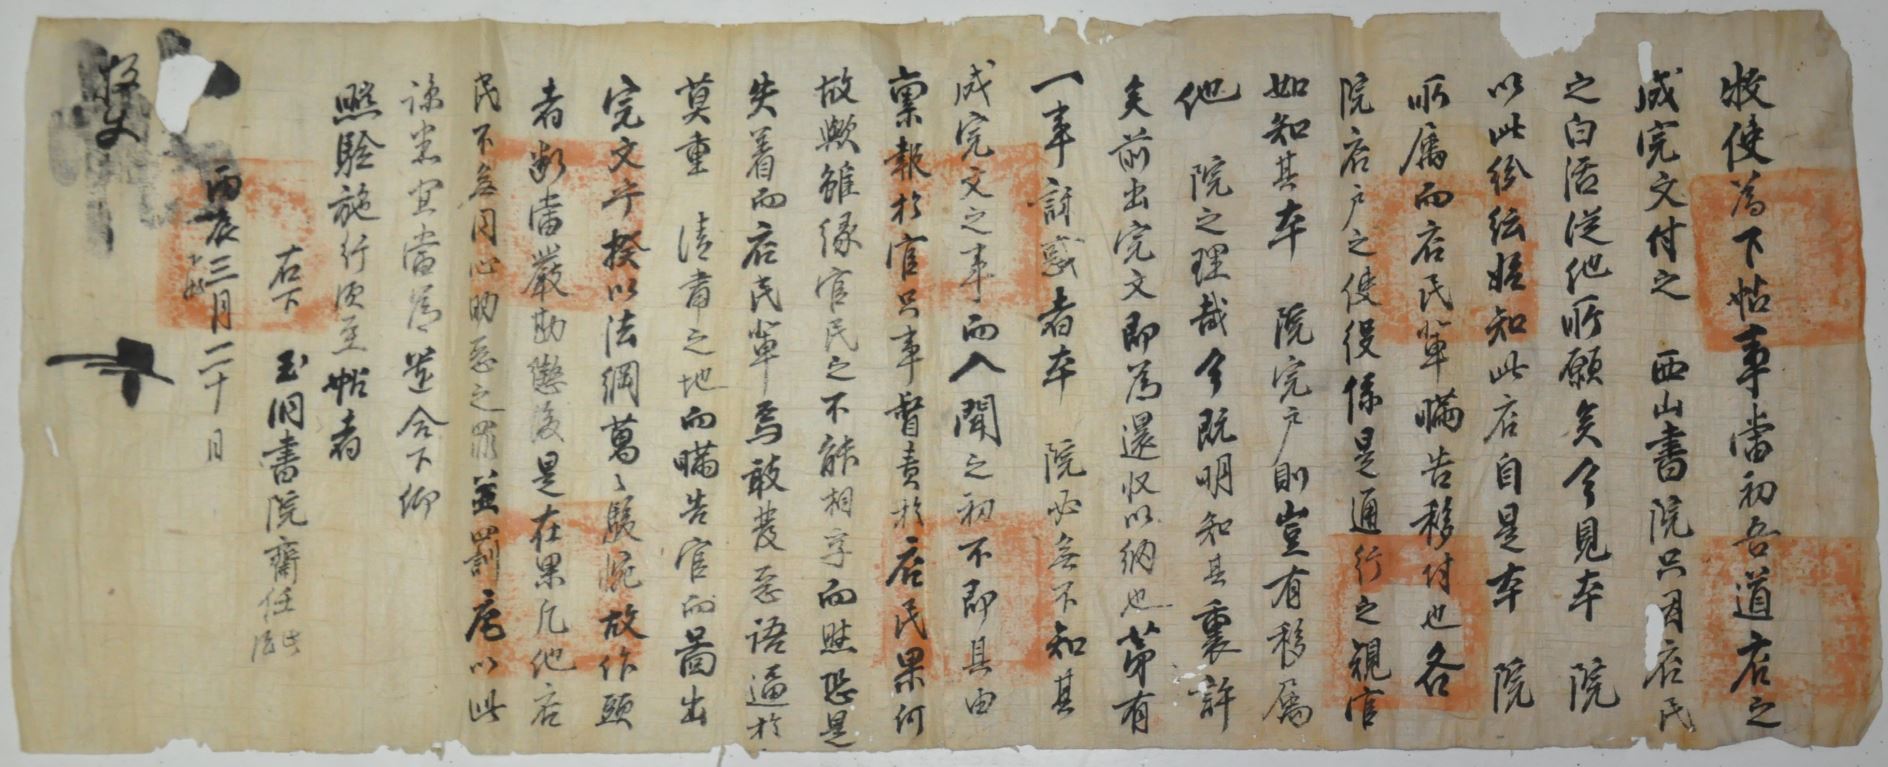 牧使爲下帖事當初吾道店之
成完文付之 西山書院只因店民
之白活從他所願矣今見本 院
以此紛紜姑知此店自是本 院
所屬而店民輩瞞告移付也各
院店戶之使役係是通行之規官
如知其本 院完戶則豈有移屬
他 院之理哉今旣明知其裏許
矣前出完文卽爲還收以納也第有
一事訝惑者本 院必無不知其
成完文之事而入聞之初不卽具由
稟報於官只事督責於店民果何
故歟雖緣官民之不能相孚而此恐是
失着而店民輩焉敢發惡語逼於
莫重 淸肅之地而瞞告官而圖出
完文乎揆以法綱萬〻駭惋故作頭
者嚴當嚴勘懲後是在果凡他店
民不無同心助惡之罪並罰店以此
諒悉宜當爲遣合下仰
照驗施行須至帖者
右下 玉洞書院齋任 此
丙辰三月二十 日
牧使